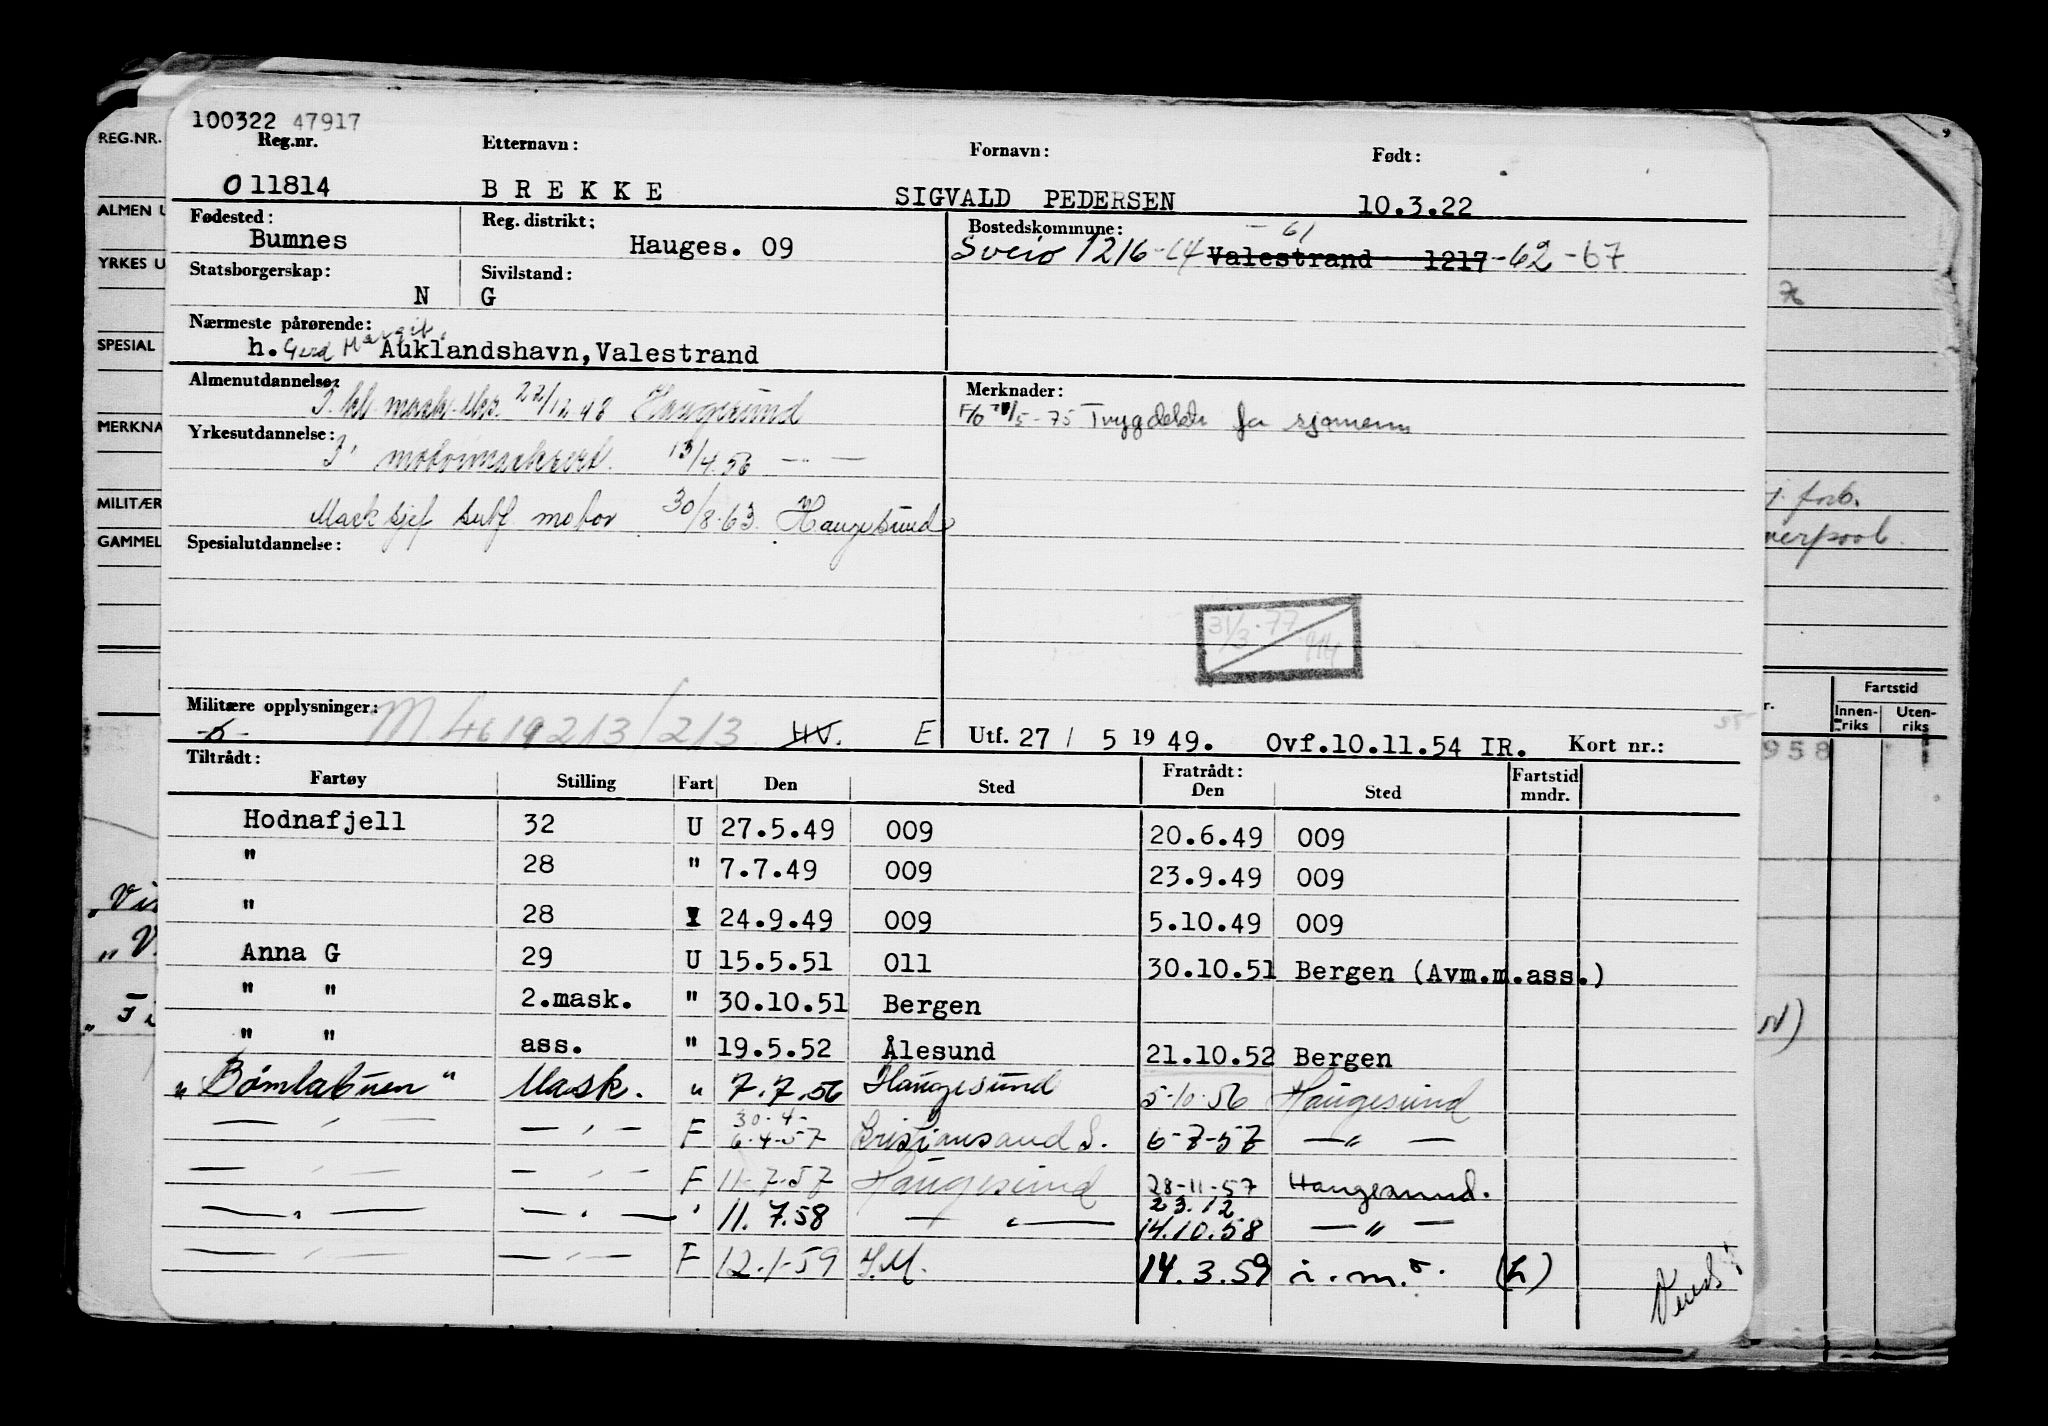 100322 47917
Reg.nr. Etternavn: Fornavn: Født:
011814 BREKKE SIGVALD PEDERSEN 10.3.22
Fødested: Reg. distrikt: Bostedskommune:
Bumnes Hauges. 09 Sveio 1216-64 Valestrand 1217 -61 -62 -67
Statsborgerskap: Sivilstand:
N G
Nærmeste pårørende:
h. Gerd Margit. Auklandshavn, Valestrand
Almenutdannelse: Merknader:
Haugesund
-75 Trygdekl for sjømenn
Yrkesutdannelse:
13/4.56 — " —
30/8.63. Haugesund
Spesialutdannelse:
31/3.77
Militære opplysninger:
HV. E Utf. 27 / 5 1949. Ovf.10.11.54 IR. Kort nr.:
Tiltrådt: Fratrådt:
Fartøy Stilling Fart Den Sted Den Sted Fartstid mndr.
Hodnafjell 32 U 27.5.49 009 20.6.49 009
" 28 " 7.7.49 009 23.9.49 009
" 28 24.9.49 009 5.10.49 009
Anna G 29 U 15.5.51 011 30.10.51 Bergen (Avm.m.ass.)
" " 2.mask. " 30.10.51 Bergen
" " ass. " 19.5.52 Ålesund 21.10.52 Bergen
"Bømlabuen" Mask. " 7.7.56 Haugesund 5-10-56 Haugesund
— " — — " — F 30-4- 6-4-57 Kristiansand S. 6-7-57 — " —
— " — — " — F 11-7-57 Haugesund 28-11-57 Haugesund.
23.12
— " — — " — " 11.7.58 — " — 14.10.58 — " —
— " — — " — F 12.1-59 I.M. 14.3.59 i.m. (L)
REG.NR.
ALMEN U
YRKES U
SPESIAL
MERKNA
MILITÆR
GAMMEL
Fartstid
Innen-riks Uten-riks
958